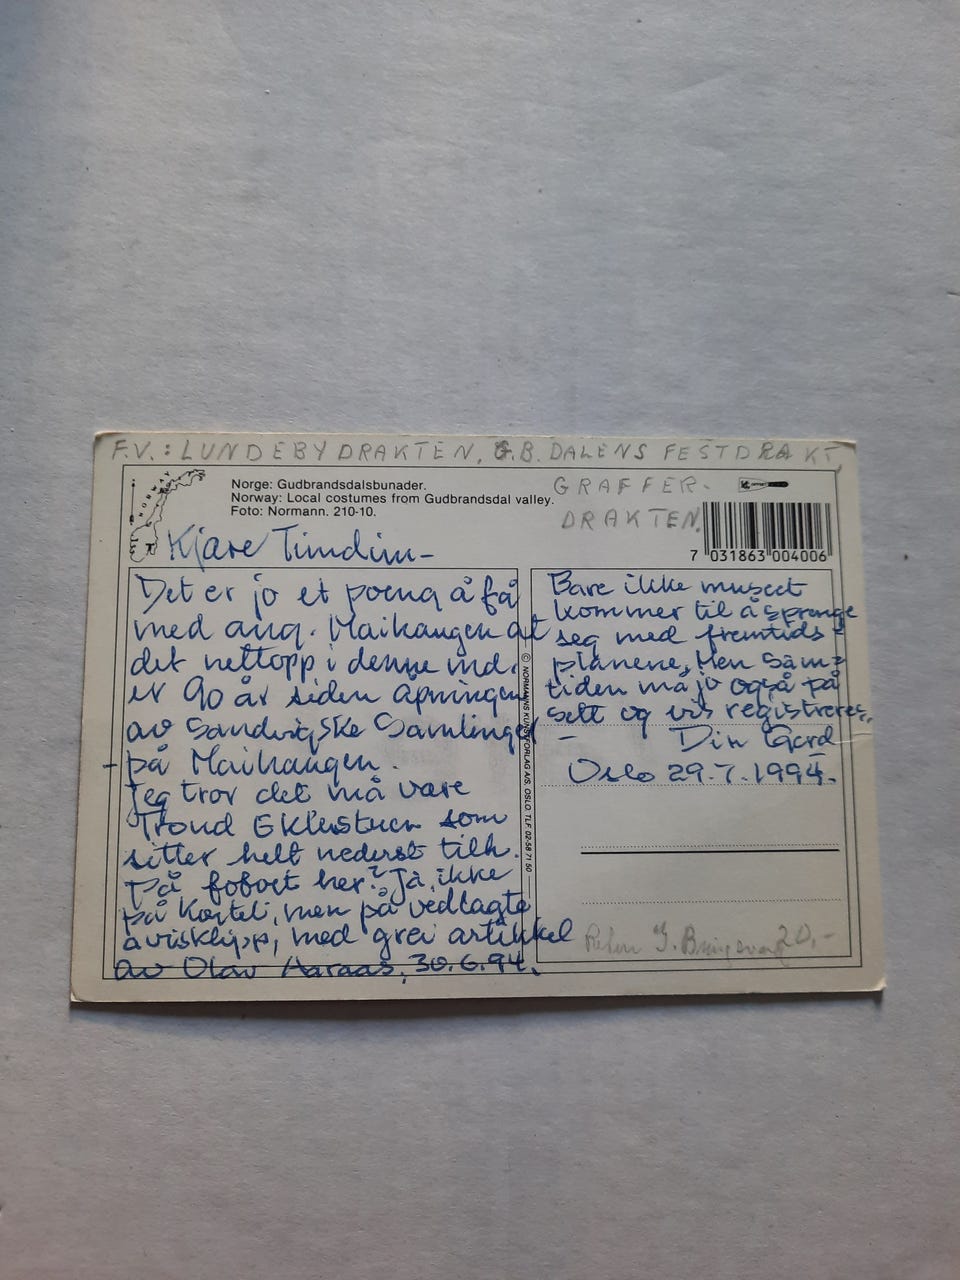 F.V.: LUNDEBYDRAKTEN, G.B. DALENS FESTDRAKT,
GRAFFER-
DRAKTEN.
NORWAY
Norge: Gudbrandsdalsbunader.
Norway: Local costumes from Gudbrandsdal valley.
Foto: Normann. 210-10.
7 031863 004006
Kjære
Det er jo et poeng å få
med ang. Maihaugen at
det nettopp i denne mnd.
er 90 år siden åpningen
av Sandvigske Samlinger
på Maihaugen.
Jeg tror det må være
Trond Eklestuen som
sitter helt nederst tilh.
på fotoet her? Ja, ikke
på kortet, men på vedlagte
avisklipp, med grei artikkel
av Olav Aaraas, 30.6.94.
© NORMANNS KUNSTFORLAG A/S, OSLO. TLF. 02-58 71 50
Bare ikke museet
kommer til å sprenge
seg med fremtids-
planene. Men sam-
tiden må jo også på
sett og vis registreres.
– Din Gard
Oslo 29.7.1994.
20,-